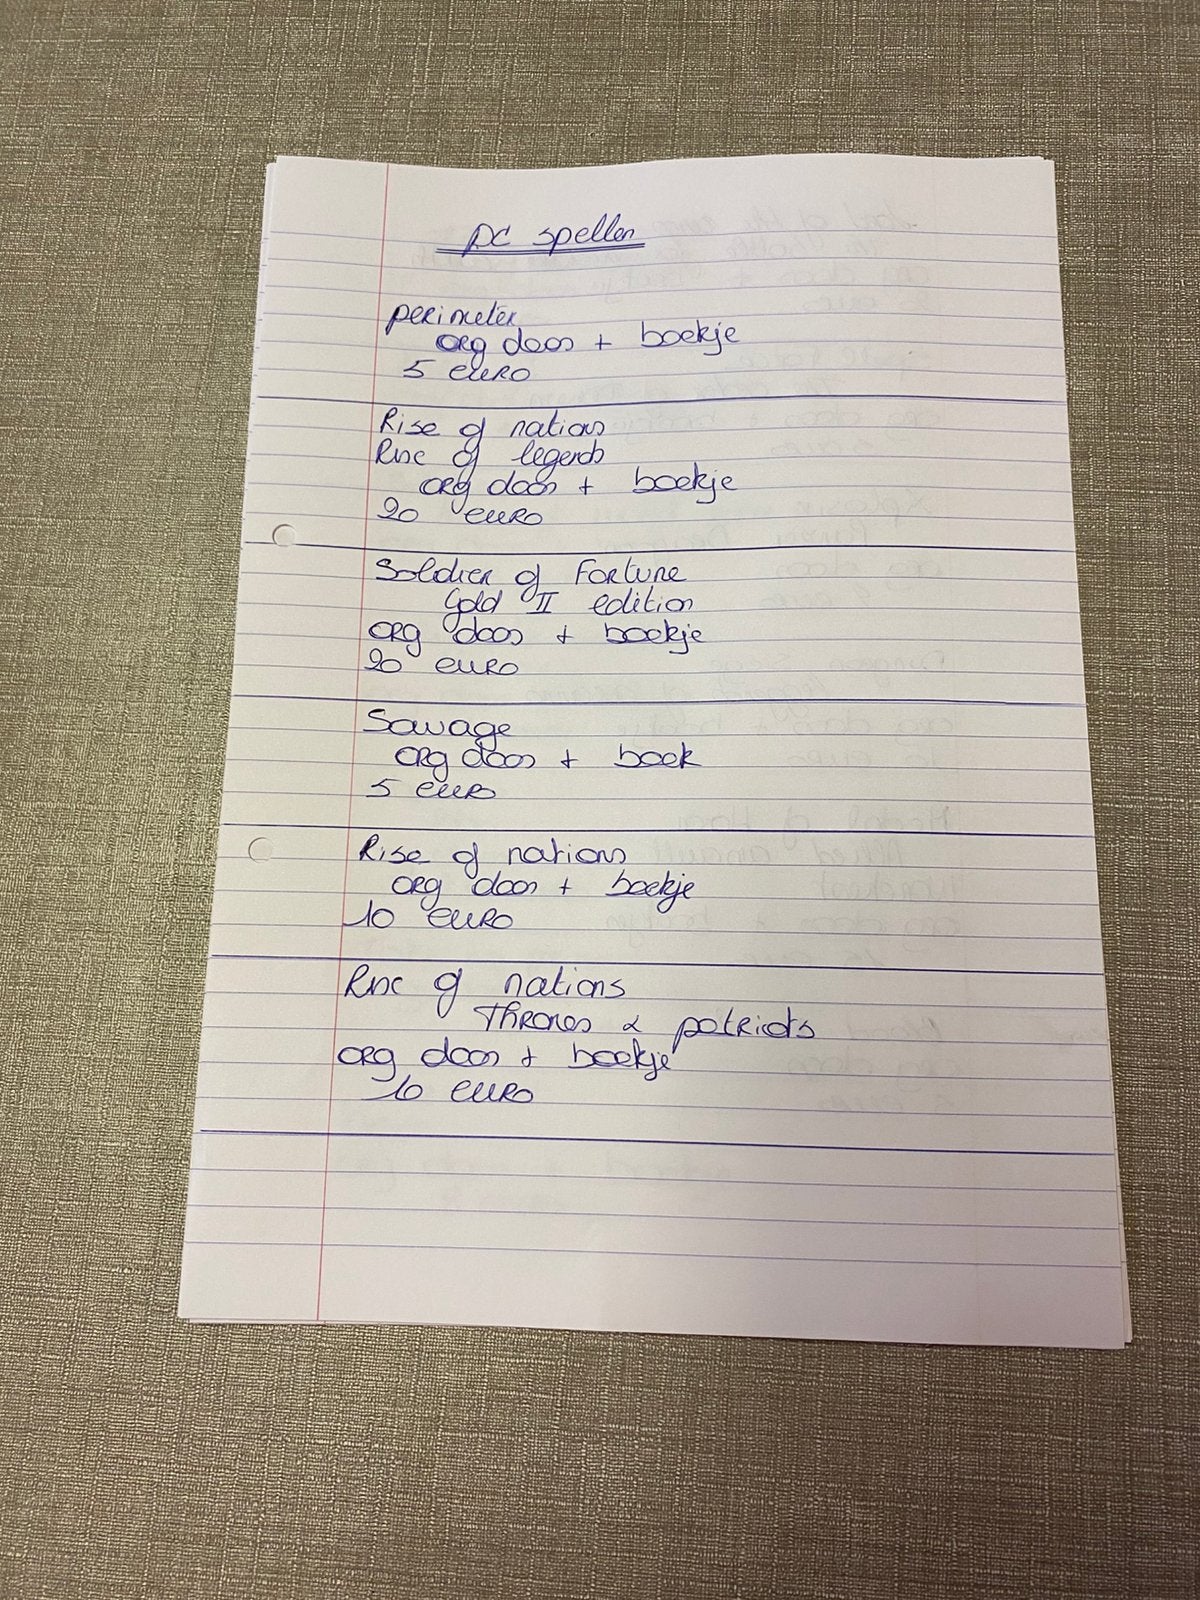 PC spellen
perimeter
org doos + boekje
5 euro
Rise of nations
Rise of legends
org doos + boekje
20 euro
Soldier of Fortune
Gold II edition
org doos + boekje
20 euro
Savage
org doos + boek
5 euro
Rise of nations
org doos + boekje
10 euro
Rise of nations
Thrones & patriots
org doos + boekje
10 euro